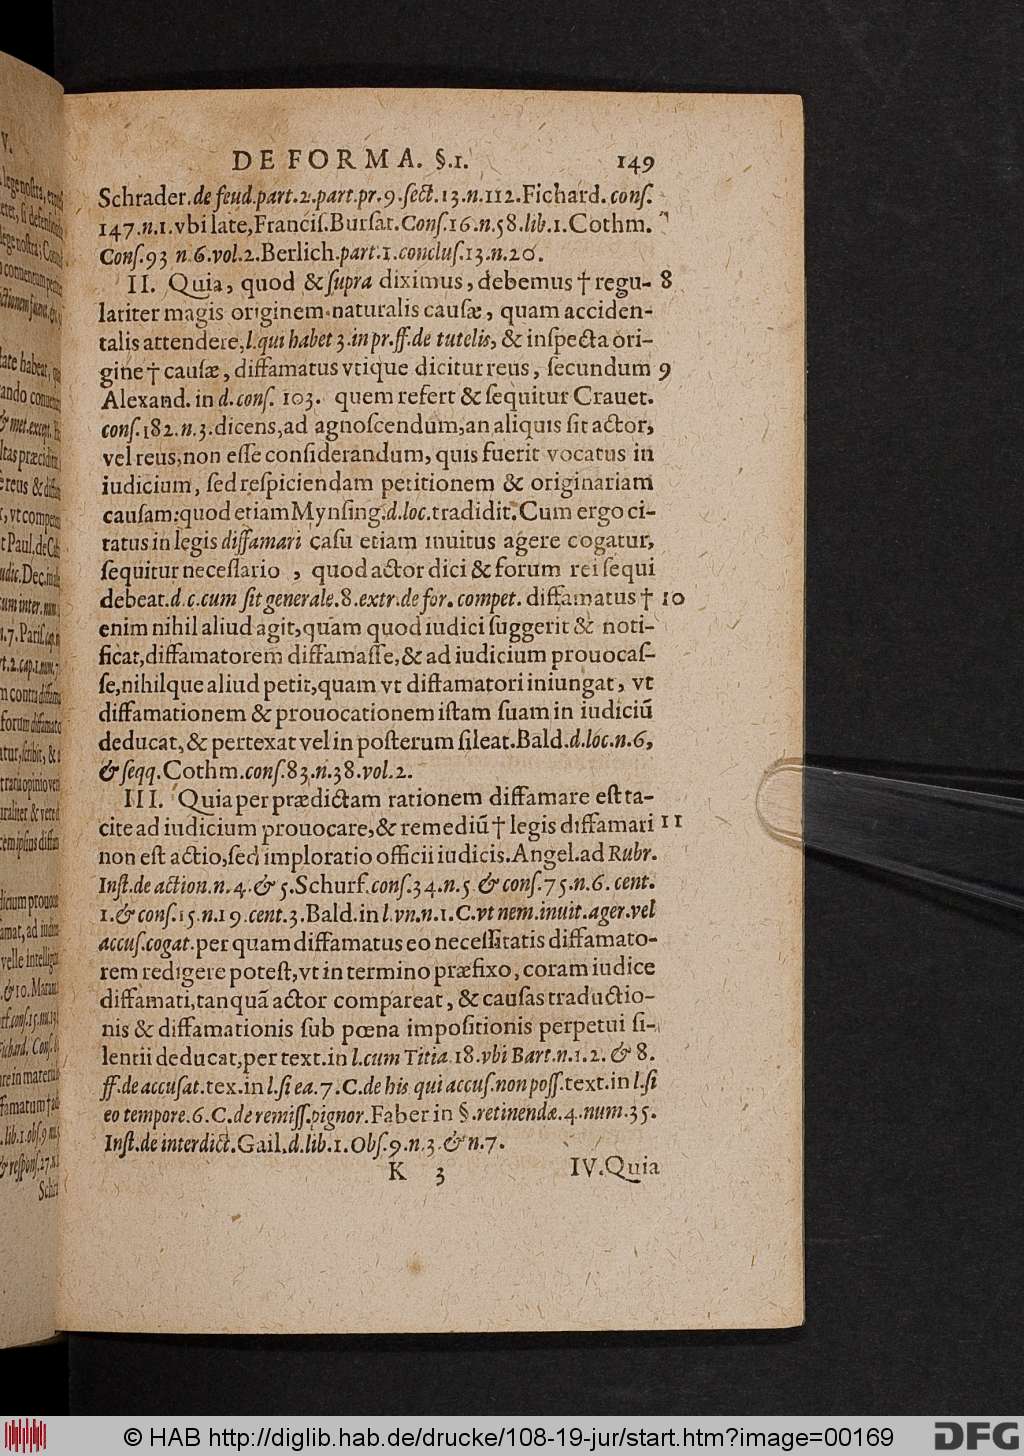 DE FORMA. §.1. 149
Schrader. de feud. part. 2. part. pr. 9. ſect. 13. n. 112. Fichard. conſ.
147. n. 1. vbi late, Franciſ. Burſat. Conſ. 16. n. 58. lib. 1. Cothm.
Conſ. 93 n. 6. vol. 2. Berlich. part. 1. concluſ. 13. n. 20.
II. Quia, quod & ſupra diximus, debemus † regu- 8
lariter magis originem naturalis cauſæ, quam acciden-
talis attendere, l. qui habet 3. in pr. ff. de tutelis, & inſpecta ori-
gine † cauſæ, diffamatus vtique dicitur reus, ſecundum 9
Alexand. in d. conſ. 103. quem refert & ſequitur Crauet.
conſ. 182. n. 3. dicens, ad agnoſcendum, an aliquis ſit actor,
vel reus, non eſſe conſiderandum, quis fuerit vocatus in
iudicium, ſed reſpiciendam petitionem & originariam
cauſam: quod etiam Mynſing. d. loc. tradidit. Cum ergo ci-
tatus in legis diffamari caſu etiam inuitus agere cogatur,
ſequitur neceſſario , quod actor dici & forum rei ſequi
debeat. d. c. cum ſit generale. 8. extr. de for. compet. diffamatus † 10
enim nihil aliud agit, quam quod iudici ſuggerit & noti-
ficat, diffamatorem diffamaſſe, & ad iudicium prouocaſ-
ſe, nihilque aliud petit, quam vt diffamatori iniungat, vt
diffamationem & prouocationem iſtam ſuam in iudiciũ
deducat, & pertexat vel in poſterum ſileat. Bald. d. loc. n. 6,
& ſeqq. Cothm. conſ. 83. n. 38. vol. 2.
III. Quia per prædictam rationem diffamare eſt ta-
cite ad iudicium prouocare, & remediũ † legis diffamari 11
non eſt actio, ſed imploratio officii iudicis. Angel. ad Rubr.
Inſt. de action. n. 4. & 5. Schurf. conſ. 34. n. 5 & conſ. 75. n. 6. cent.
1. & conſ. 15. n. 19. cent. 3. Bald. in l. vn. n. 1. C. vt nem. inuit. ager. vel
accuſ. cogat. per quam diffamatus eo neceſſitatis diffamato-
rem redigere poteſt, vt in termino præfixo, coram iudice
diffamati, tanquã actor compareat, & cauſas traductio-
nis & diffamationis ſub pœna impoſitionis perpetui ſi-
lentii deducat, per text. in l. cum Titia 18. vbi Bart. n. 1. 2. & 8.
ff. de accuſat. tex. in l. ſi ea. 7. C. de his qui accuſ. non poſſ. text. in l. ſi
eo tempore. 6. C. de remiſſ. pignor. Faber in §. retinendæ. 4. num. 35.
Inſt. de interdict. Gail. d. lib. 1. Obſ. 9. n. 3. & n. 7.
K 3 IV. Quia
© HAB http://diglib.hab.de/drucke/108-19-jur/start.htm?image=00169
DFG